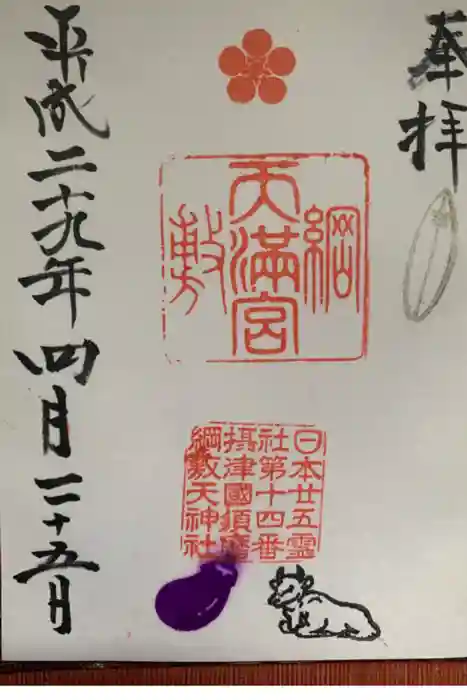 奉拝
綱
敷
天滿宮
日本廿五霊
社第十四番
摂津國須磨
綱敷天神社
平成二十九年四月二十五日